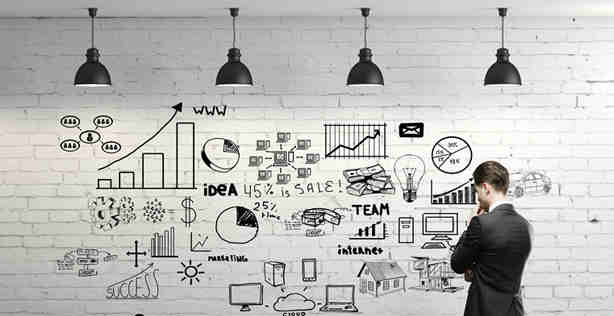 WWW
iDEA
45% is SALE!
25%
time
TEAM
internet
marketing
SUCCESS
CLOUD